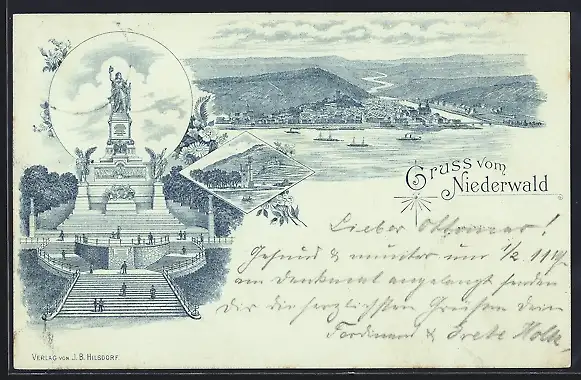 Gruss vom
Niederwald
Lieber Ottomar!
Gesund & munter um 1/2 11 Uhr
am Denkmal angelangt senden
Dir die herzlichsten Grüsse Dein
Ferdinand & Grete
VERLAG VON J. B. HILSDORF.